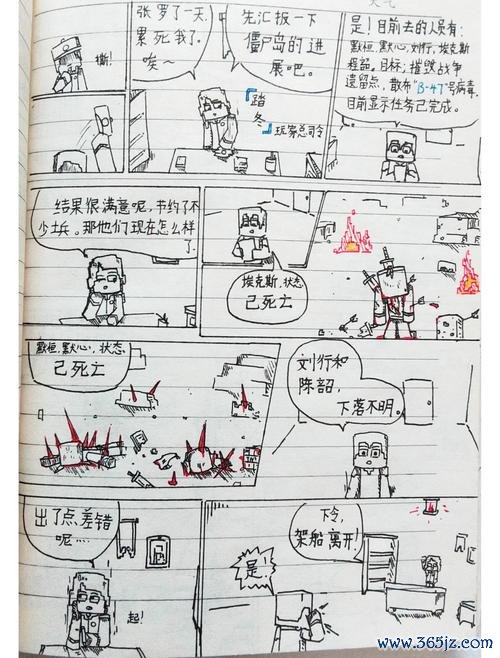 撕!
张罗了一天,
累死我了。
唉~
先汇报一下
僵尸岛的进
展吧。
『踏
冬』
玩家总司令
是!目前去的人员有:
默桓,默心,刘行,埃克斯
程韶。目标:摧毁战争
遗留点,散布"B-47"号病毒,
目前显示任务已完成。
结果很满意呢,节约了不
少士兵。那他们现在怎么样
了
埃克斯,状态
已死亡
默桓,默心,状态
已死亡
刘行和
陈韶,
下落不明。
出了点差错
呢…
起!
是!
下令,
架船离开!
www.365jz.com